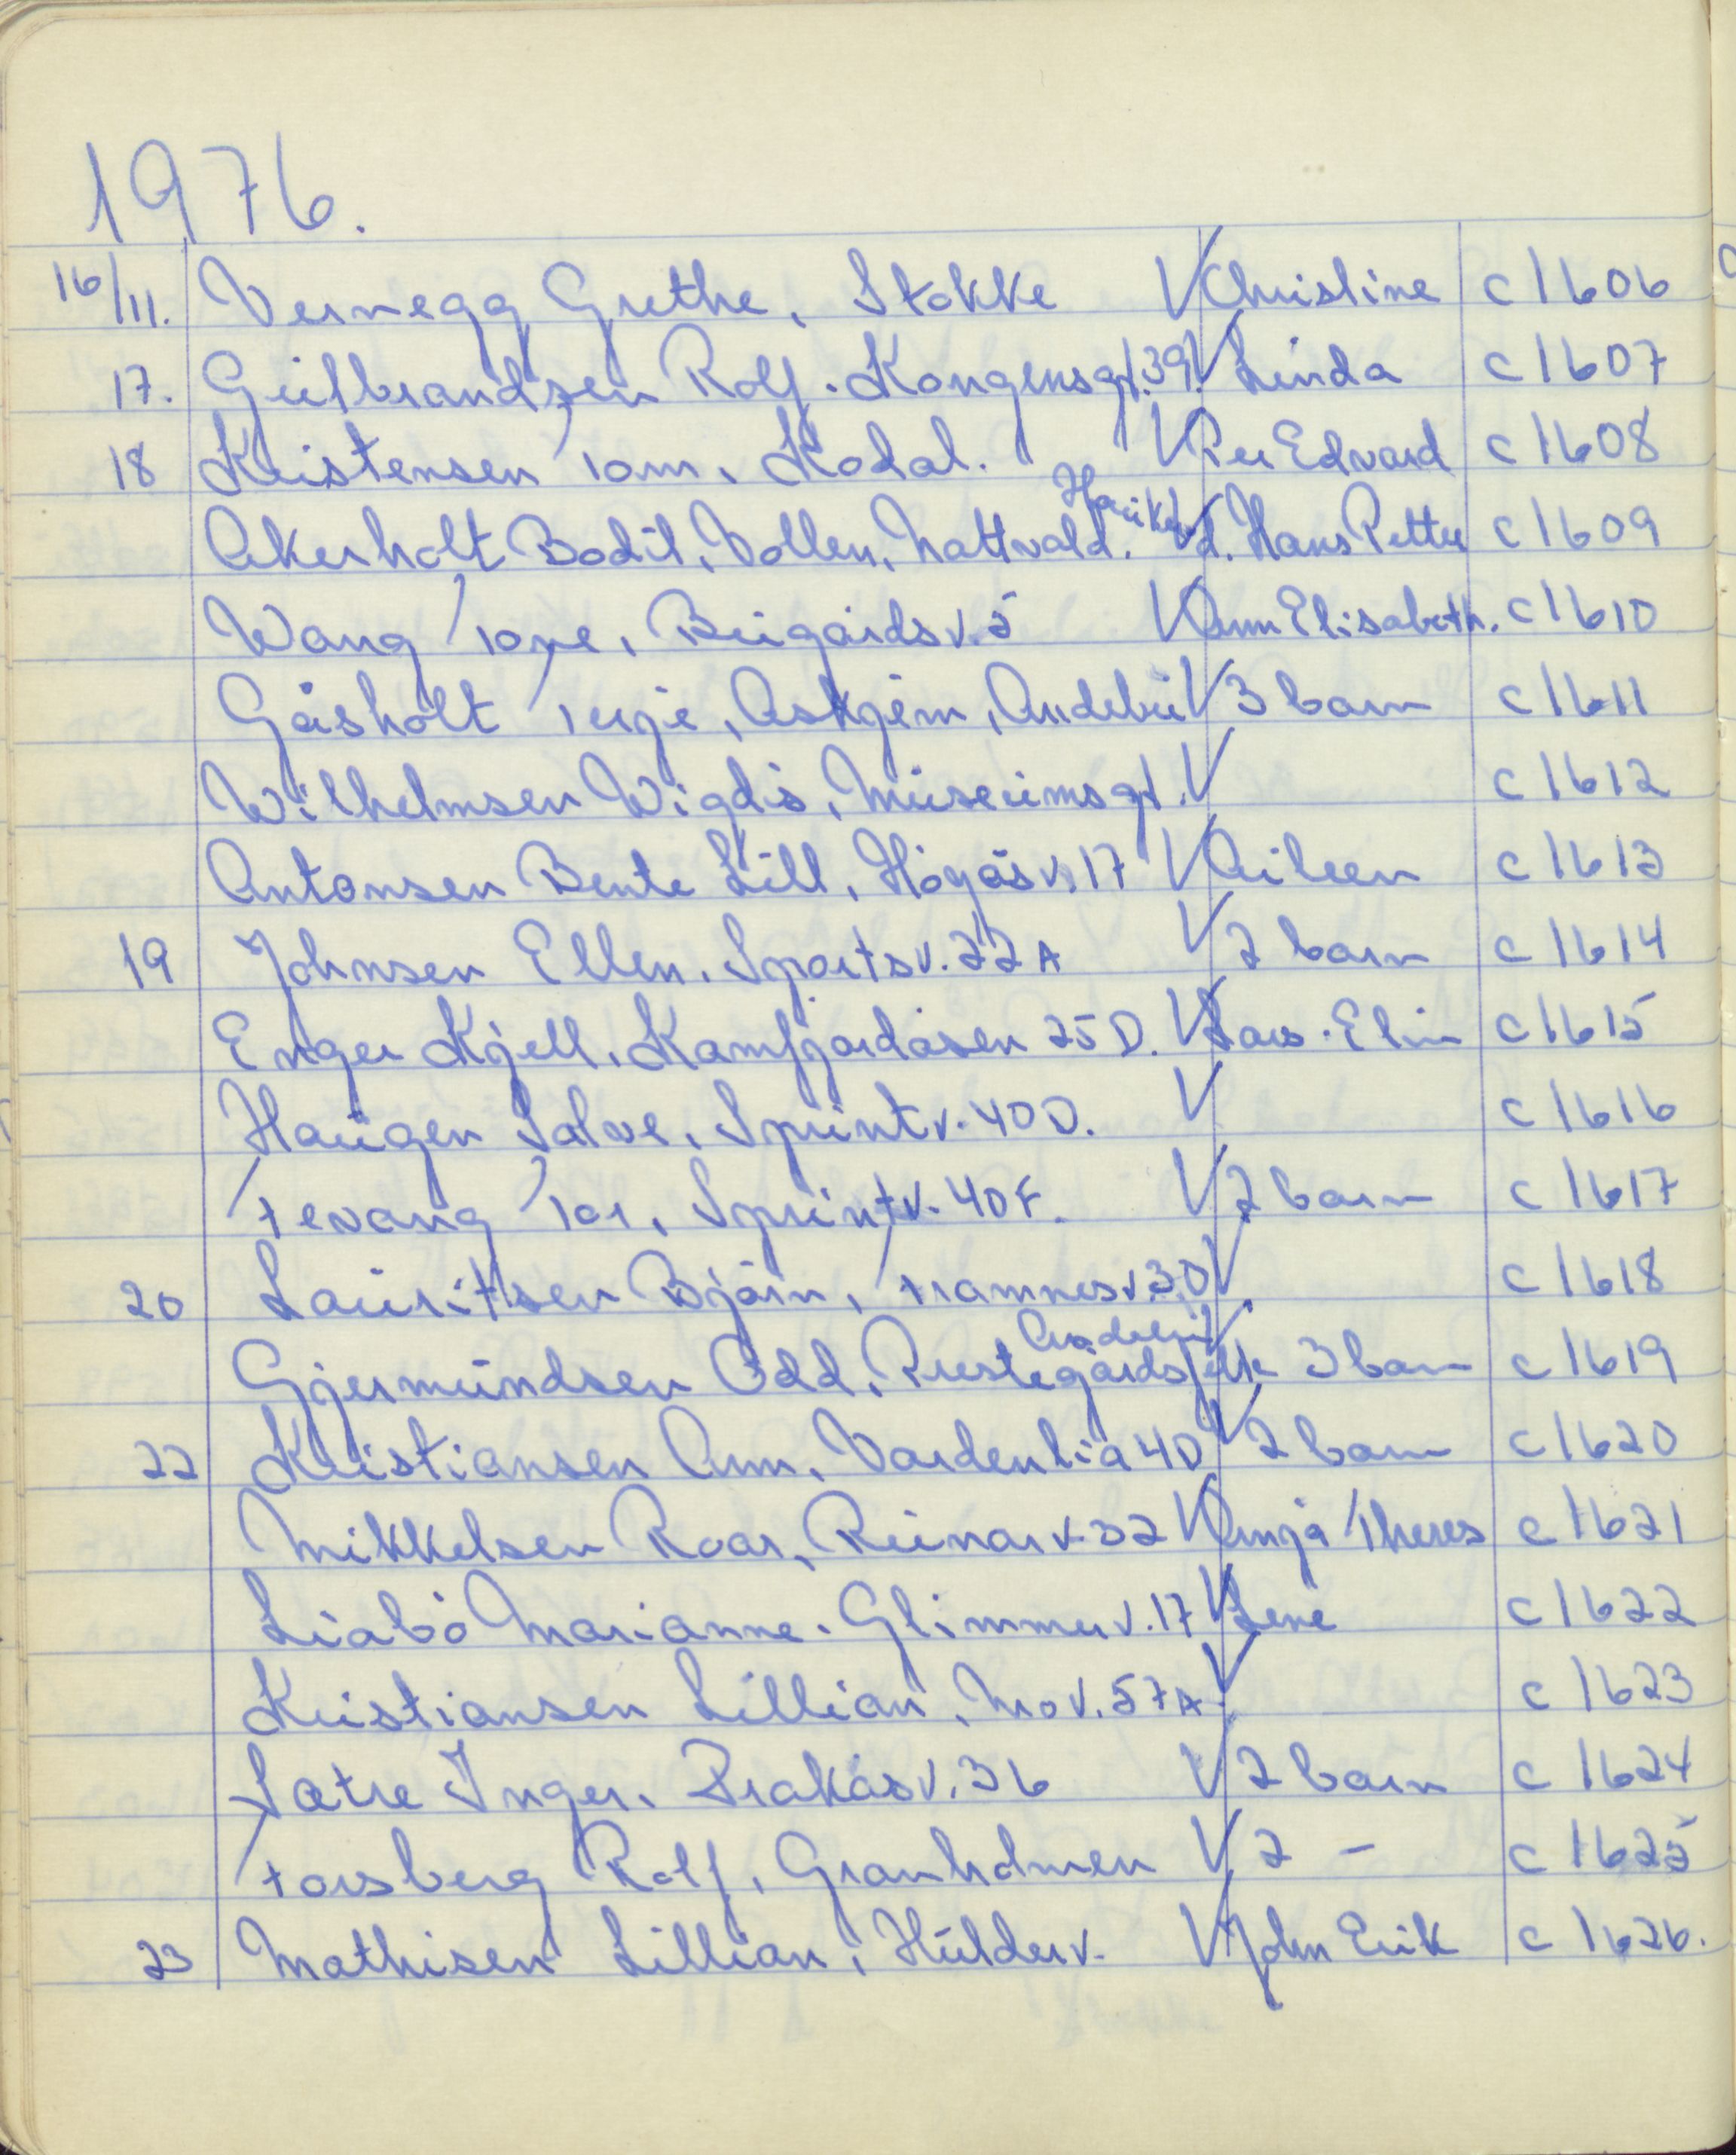 1976.
16/11. Vernegg Grethe, Stokke V Christine c 1606
17. Gulbrandsen Rolf. Kongensgt. 39. V Linda c 1607
18 Kristensen Tom, Kodal. V Per Edvard c 1608
Akerholt Bodil, Vollen, Nattvald. V d. Hans Petter c 1609
Wang Tone, Bugårds v. 5 V Ann Elisabeth. c 1610
Gåsholt Terje, Askjem, Andebu V 3 barn c 1611
Wilhelmsen Wigdis, Museumsgt. V c 1612
Antonsen Bente Lill, Högås v. 17 V Aileen c 1613
19 Johnsen Ellen. Sports v. 22 A V 2 barn c 1614
Enger Kjell. Kamfjordåsen 25 D. V Lars. Elin c 1615
Haugen Salve, Sprint v. 40 D. V c 1616
Tevang Tor, Sprint v. 40 F. V 2 barn c 1617
20 Lauritsen Björn, Framnes v. 30 V c 1618
Andebu
Gjermundsen Odd, Prestegårds V 3 barn c 1619
22 Kristiansen Ann, Vardenlia 40 V 2 barn c 1620
Mikkelsen Roar, Reinar v. 32 V Anja Theres c 1621
Liabö Marianne. Glimmer v. 17 V Lene c 1622
Kristiansen Lillian, Mo v. 57 A V c 1623
Sætre Inger. Brakås v. 36 V 2 barn c 1624
Forsberg Rolf, Granholmen V 2 - c 1625
23 Mathisen Lillian, Hulder v. V John Erik c 1626.